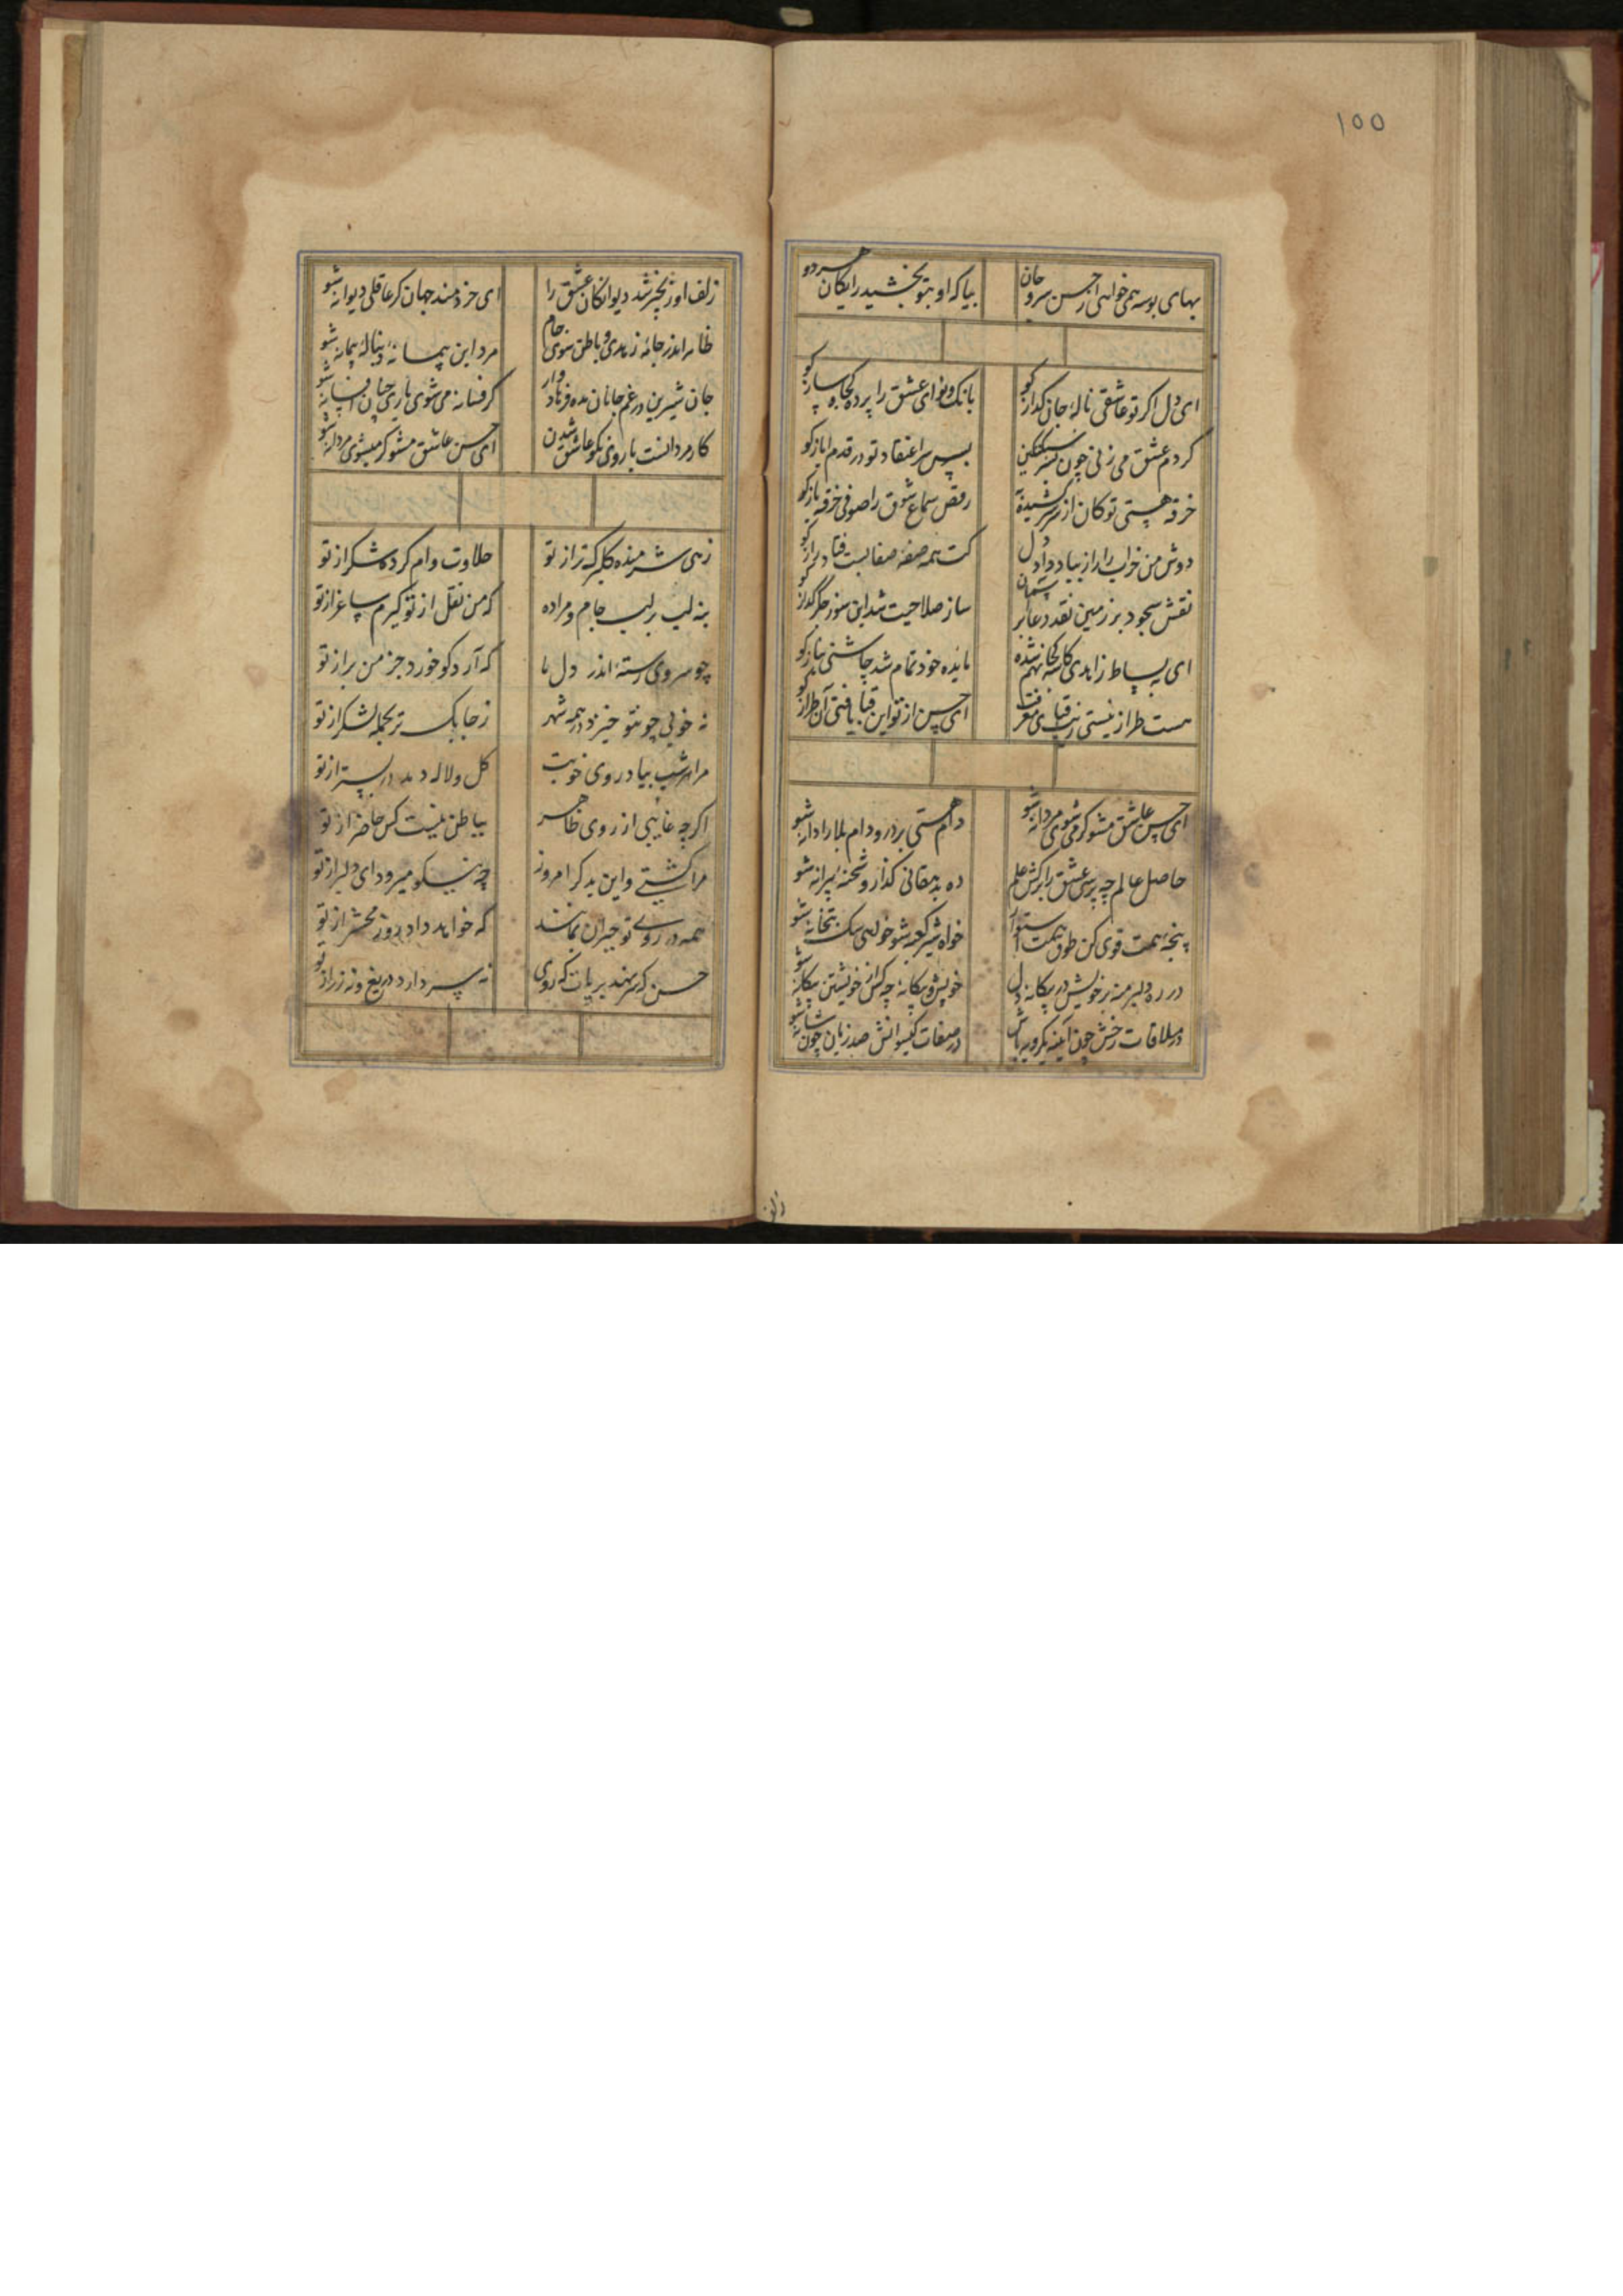 ۱۵۵
بهای بوسه همی خواهی از حسن سر و جان
بیا که او بتو بخشید رایکان هر دو
ای دل اکر تو عاشقی نالهٔ جان کداز کو
بانک و نوای عشق را پرده کجا و ساز کو
کر دم عشق می زنی چون سبکتکین
بپس سر اعتقاد تو در قدم ایاز کو
خرقه هستی تو کان از سر کشیدهٔ
رقص سماع شوق را صوفی خرقه باز کو
دوش من خراب را از بیاد داد دل
کت همه صفه صفا لبت فتاد راز کو
نقش سجود بر زمین نقد دعا بر آسمان
ساز صلاحیت شد این سوز جکر کداز کو
ای به بساط زاهدی کاسه کجا نهم شده
مایده خود تمام شد چاشنی نیاز کو
هست طراز نیستی زینت قبای معرفت
ای حسن از تو این قبا یافتی آن طراز کو
ای حسن عاشق مشو کر می شوی مردانه شو
دام هستی بر در و دام بلا را دانه شو
حاصل عالم چه پرسی عشق را برکش علم
ده بدهقانی کذار و شحنه ویرانه شو
پنجهٔ همت قوی کن طوق همت استوار
خواه شیر کعبه شو خواهی سک بتخانه شو
در ره دلبر منه بر خویش در بیکانه دل
خویش و بیکانه چه کز خویشتن بیکانه شو
در ملاقات رخش چون آینه یکرو باش
در صفات کیسوانش صد زبان چون شانه شو
زلف
زلف او زنجیر شد دیوانکان عشق را
ای خردمند جهان کر عاقلی دیوانه شو
ظاهر اندر جامهٔ زاهدی و باطن سوی جام
مرد این پیمانه دنبالهٔ پیمانه شو
جان شیرین در غم جانان بده فرهاد وار
کر فسانه می شوی باری چنان افسانه شو
کار مردانست با روی نکو عاشق شدن
ای حسن عاشق مشو کر میشوی مردانه شو
زهی شرمنده کلبرک تر از تو
حلاوت وام کرده شکر از تو
بنه لب بر لب جام و مرا ده
که من نقل از تو کیرم ساغر از تو
چو سروی رستهٔ اندر دل ما
که آرد کو خورد جز من بر از تو
نه خوبی چو تو خیزد در همه شهر
ز چابک تر بجمله لشکر از تو
مرا هر شب بیاد روی خوبت
کل و لاله دمد در بستر از تو
اکرچه غایبی از روی ظاهر
بباطن نیست کس حاضر از تو
مرا کشتی و این بد کر امروز
چه نیکو میرود ای دلبر از تو
همه در روی تو حیران بمانند
که خواهد داد روز محشر از تو
حسن که سر نهد بر پات که روی
نه سر دارد دریغ و نه زر از تو